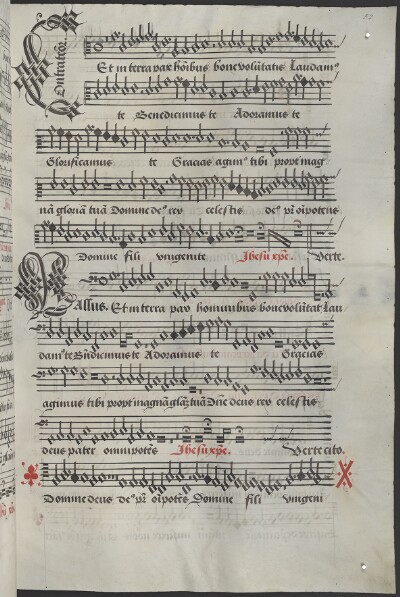 Contratenoꝛ.
Et in terra pax hoı̄bus bone volūtatis Laudamꝰ
te Benedicimus te Adoramus te
Glorificamus te Gracias agimꝰ tibi propt' mag
nā gloriā tuā Domine deꝰ rex celestis deꝰ pr̄ oı̄potens
Domine fili vnigenite Jhesu xp̄e. Verte.
Bassus. Et in terra pax hominibus bone volūtat Lau
damꝰ te Bn̄dicimus te Adoramus te Gracias
agimus tibi propt' magnā glā tuā Dn̄e deus rex celestis
deus pater omnipotēs Jhesu xp̄e. Verte cito.
Domine deus deꝰ pr̄ oı̄potēs Domine fili vnigeni